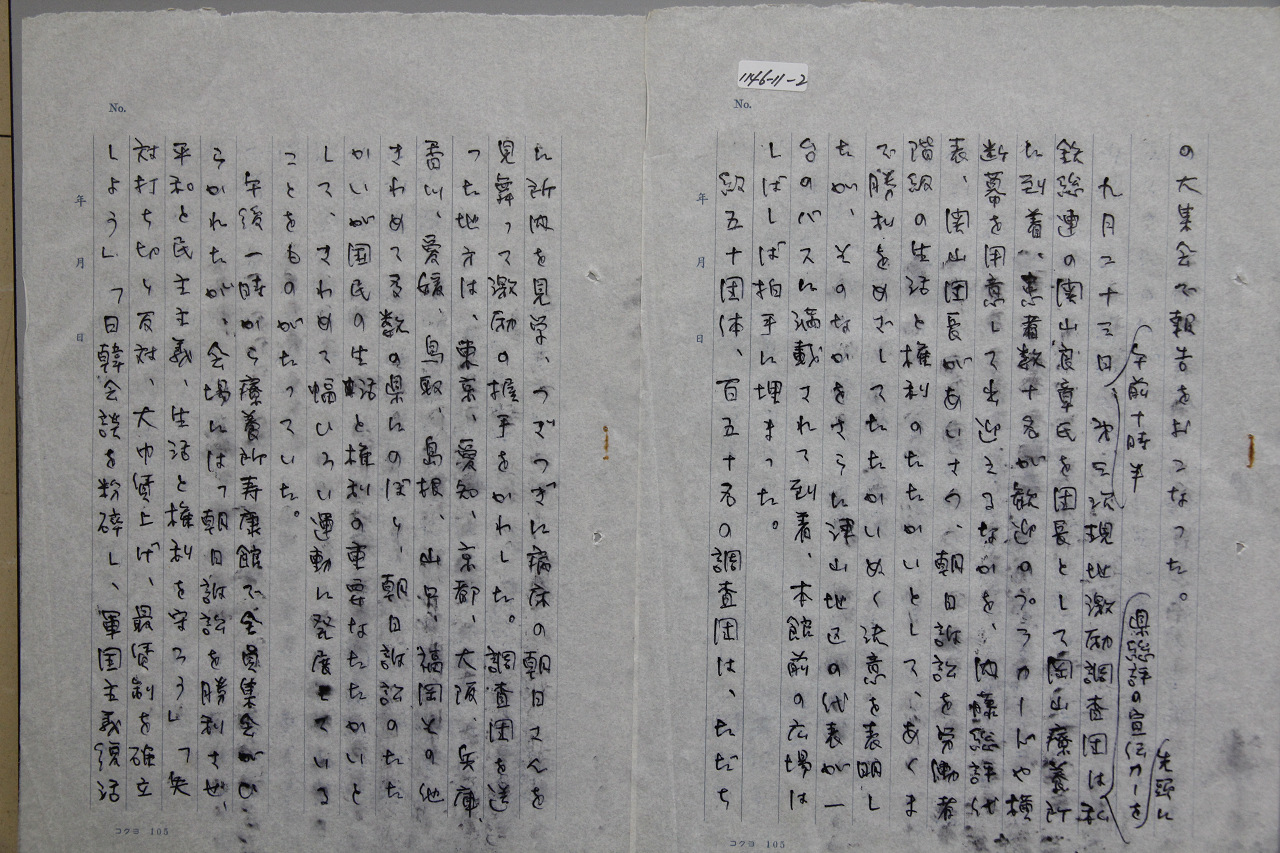 1146-11-2
No.
の大集会で報告をおこなった。
午前十時半
県総評の宣伝カーを
先頭に
九月二十三日、第三次現地激励調査団は私
鉄総連の関山宣章氏を団長として岡山療養所
に到着、患者数十名が歓迎のプラカードや横
断幕を用意して出迎えるなかを、内藤総評代
表、関山団長があいさつ、朝日訴訟を労働者
階級の生活と権利のたたかいとして、あくま
で勝利をめざしてたたかいぬく決意を表明し
たが、そのなかをさらに津山地区の代表が一
台のバスに満載されて到着、本館前の広場は
しばしば拍手に埋まった。
総五十団体、百五十名の調査団は、ただち
年
月
日
コクヨ 105
No.
に所内を見学、つぎつぎに病床の朝日さんを
見舞って激励の握手をかわした。調査団を送
った地方は、東京、愛知、京都、大阪、兵庫、
香川、愛媛、鳥取、島根、山口、福岡その他
きわめて多数の県にのぼり、朝日訴訟のたた
かいが国民の生活と権利の重要なたたかいと
して、きわめて幅ひろい運動に発展している
ことをものがたっていた。
午後一時から療養所寿康館で全員集会がひ
らかれたが、会場には「朝日訴訟を勝利させ、
平和と民主主義、生活と権利を守ろう」「失
対打ち切り反対、大巾賃上げ、最賃制を確立
しよう」「日韓会談を粉砕し、軍国主義復活
年
月
日
コクヨ 105